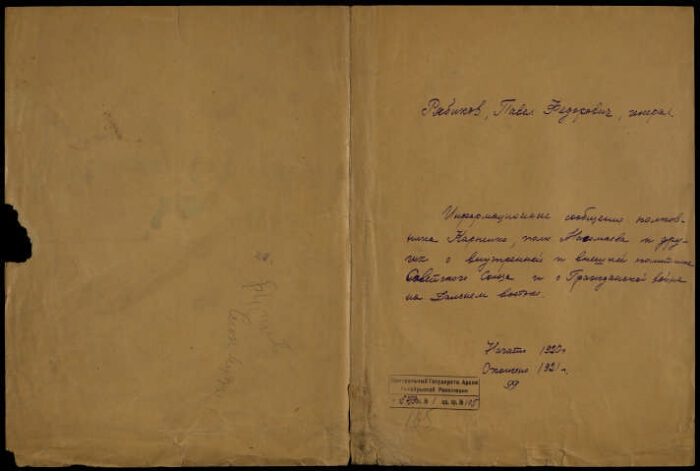 Рябиков, Павел Федорович, генерал
Информационные сообщения полков-
ника и дру-
гих о внутренней и внешней политике
Советского Союза и о Гражданской войне
на Дальнем востоке.
Начато 1920 г.
Окончено 1921 г.
99
Центральный Государств. Архив
Октябрьской Революции